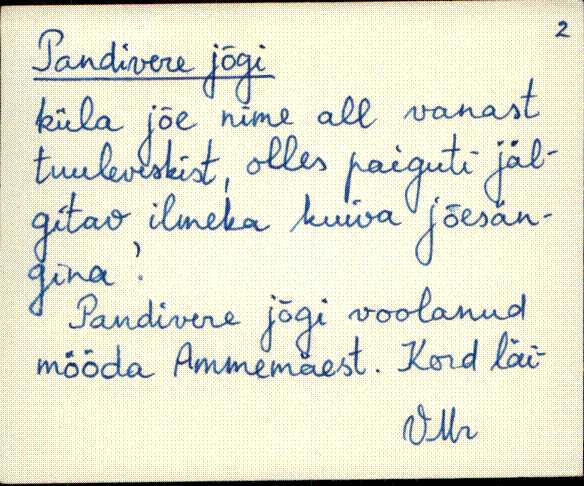 2
Pandivere jõgi
küla jõe nime all vanast
tuuleveskist, olles paiguti jäl-
gitav ilmeka kuiva jõesän-
gina?.
Pandivere jõgi voolanud
mööda Ammemäest. Kord läi-
VMr